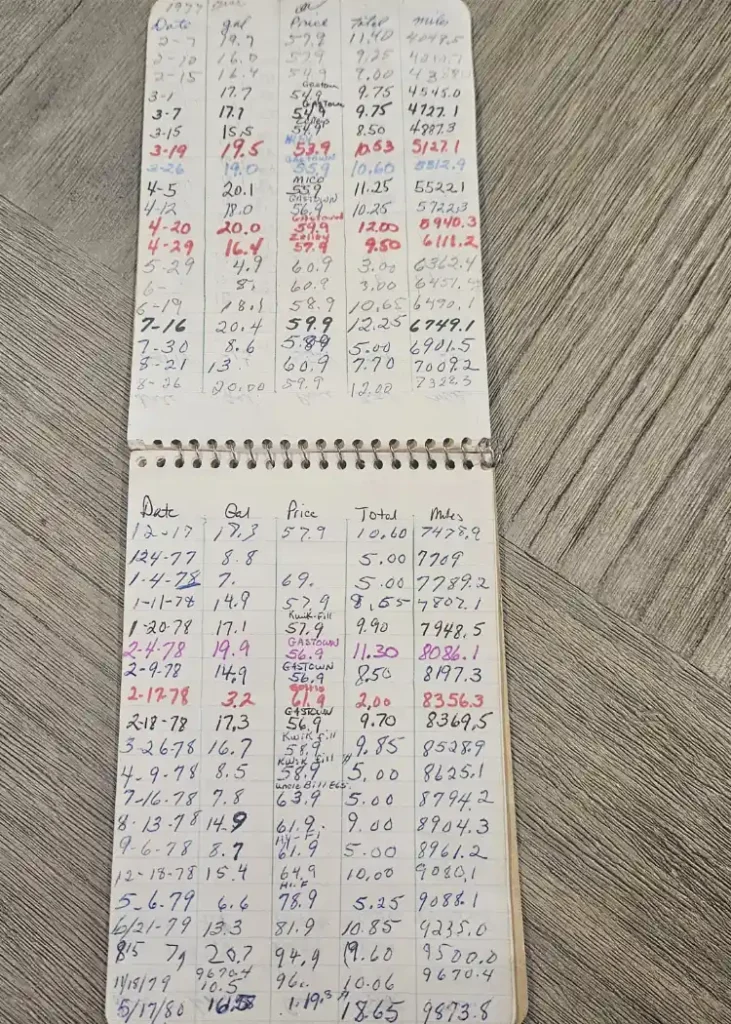 1977
Date gal Price Total Miles
2-7 19.7 57.9 11.40 4048.5
2-10 16.0 57.9 9.25
2-15 16.4 54.9 9.00
Gastown
3-1 17.7 54.9 9.75 4545.0
Gastown
3-7 17.7 54.9 9.75 4727.1
3-15 15.5 54.9 8.50 4887.3
3-19 19.5 53.9 10.53 5127.1
GASTOWN
3-26 19.0 55.9 10.60 5312.9
MICO
4-5 20.1 55.9 11.25 5522.1
GASTOWN
4-12 18.0 56.9 10.25 5722.3
Gastown
4-20 20.0 59.9 12.00 5940.3
4-29 16.4 57.9 9.50 6111.2
5-29 4.9 60.9 3.00 6362.4
6- 8. 60.9 3.00
6-19 18.1 58.9 10.65 6490.1
7-16 20.4 59.9 12.25 6749.1
7-30 8.6 5.89 5.00 6901.5
8-21 13 60.9 7.70 7009.2
8-26 20.00 59.9 12.00 7322.3
Date Gal Price Total Miles
12-17 18.3 57.9 10.60 7478.9
124-77 8.8 5.00 7709
1-4-78 7. 69. 5.00 7789.2
1-11-78 14.9 57.9 8.55 7807.1
Kwik-Fill
1-20-78 17.1 57.9 9.90 7948.5
GASTOWN
2-4-78 19.9 56.9 11.30 8086.1
GASTOWN
2-9-78 14.9 56.9 8.50 8197.3
2-17-78 3.2 61.9 2.00 8356.3
GASTOWN
2-18-78 17.3 56.9 9.70 8369.5
Kwik Fill
3-26-78 16.7 58.9 9.85 8528.9
Kwik Fill
4-9-78 8.5 58.9 5.00 8625.1
Uncle Bill EGS.
7-16-78 7.8 63.9 5.00 8794.2
8-13-78 14.9 61.9 9.00 8904.3
Hy-Fi
9-6-78 8.7 61.9 5.00 8961.2
12-18-78 15.4 64.9 10.00 9080.1
Hi.F
5-6-79 6.6 78.9 5.25 9088.1
6/21-79 13.3 81.9 10.85 9235.0
815 79 20.7 94.9 19.60 9500.0
9670.4
11/15/79 10.5 96. 10.06 9670.4
5/17/80 1.19.9 18.65 9873.8